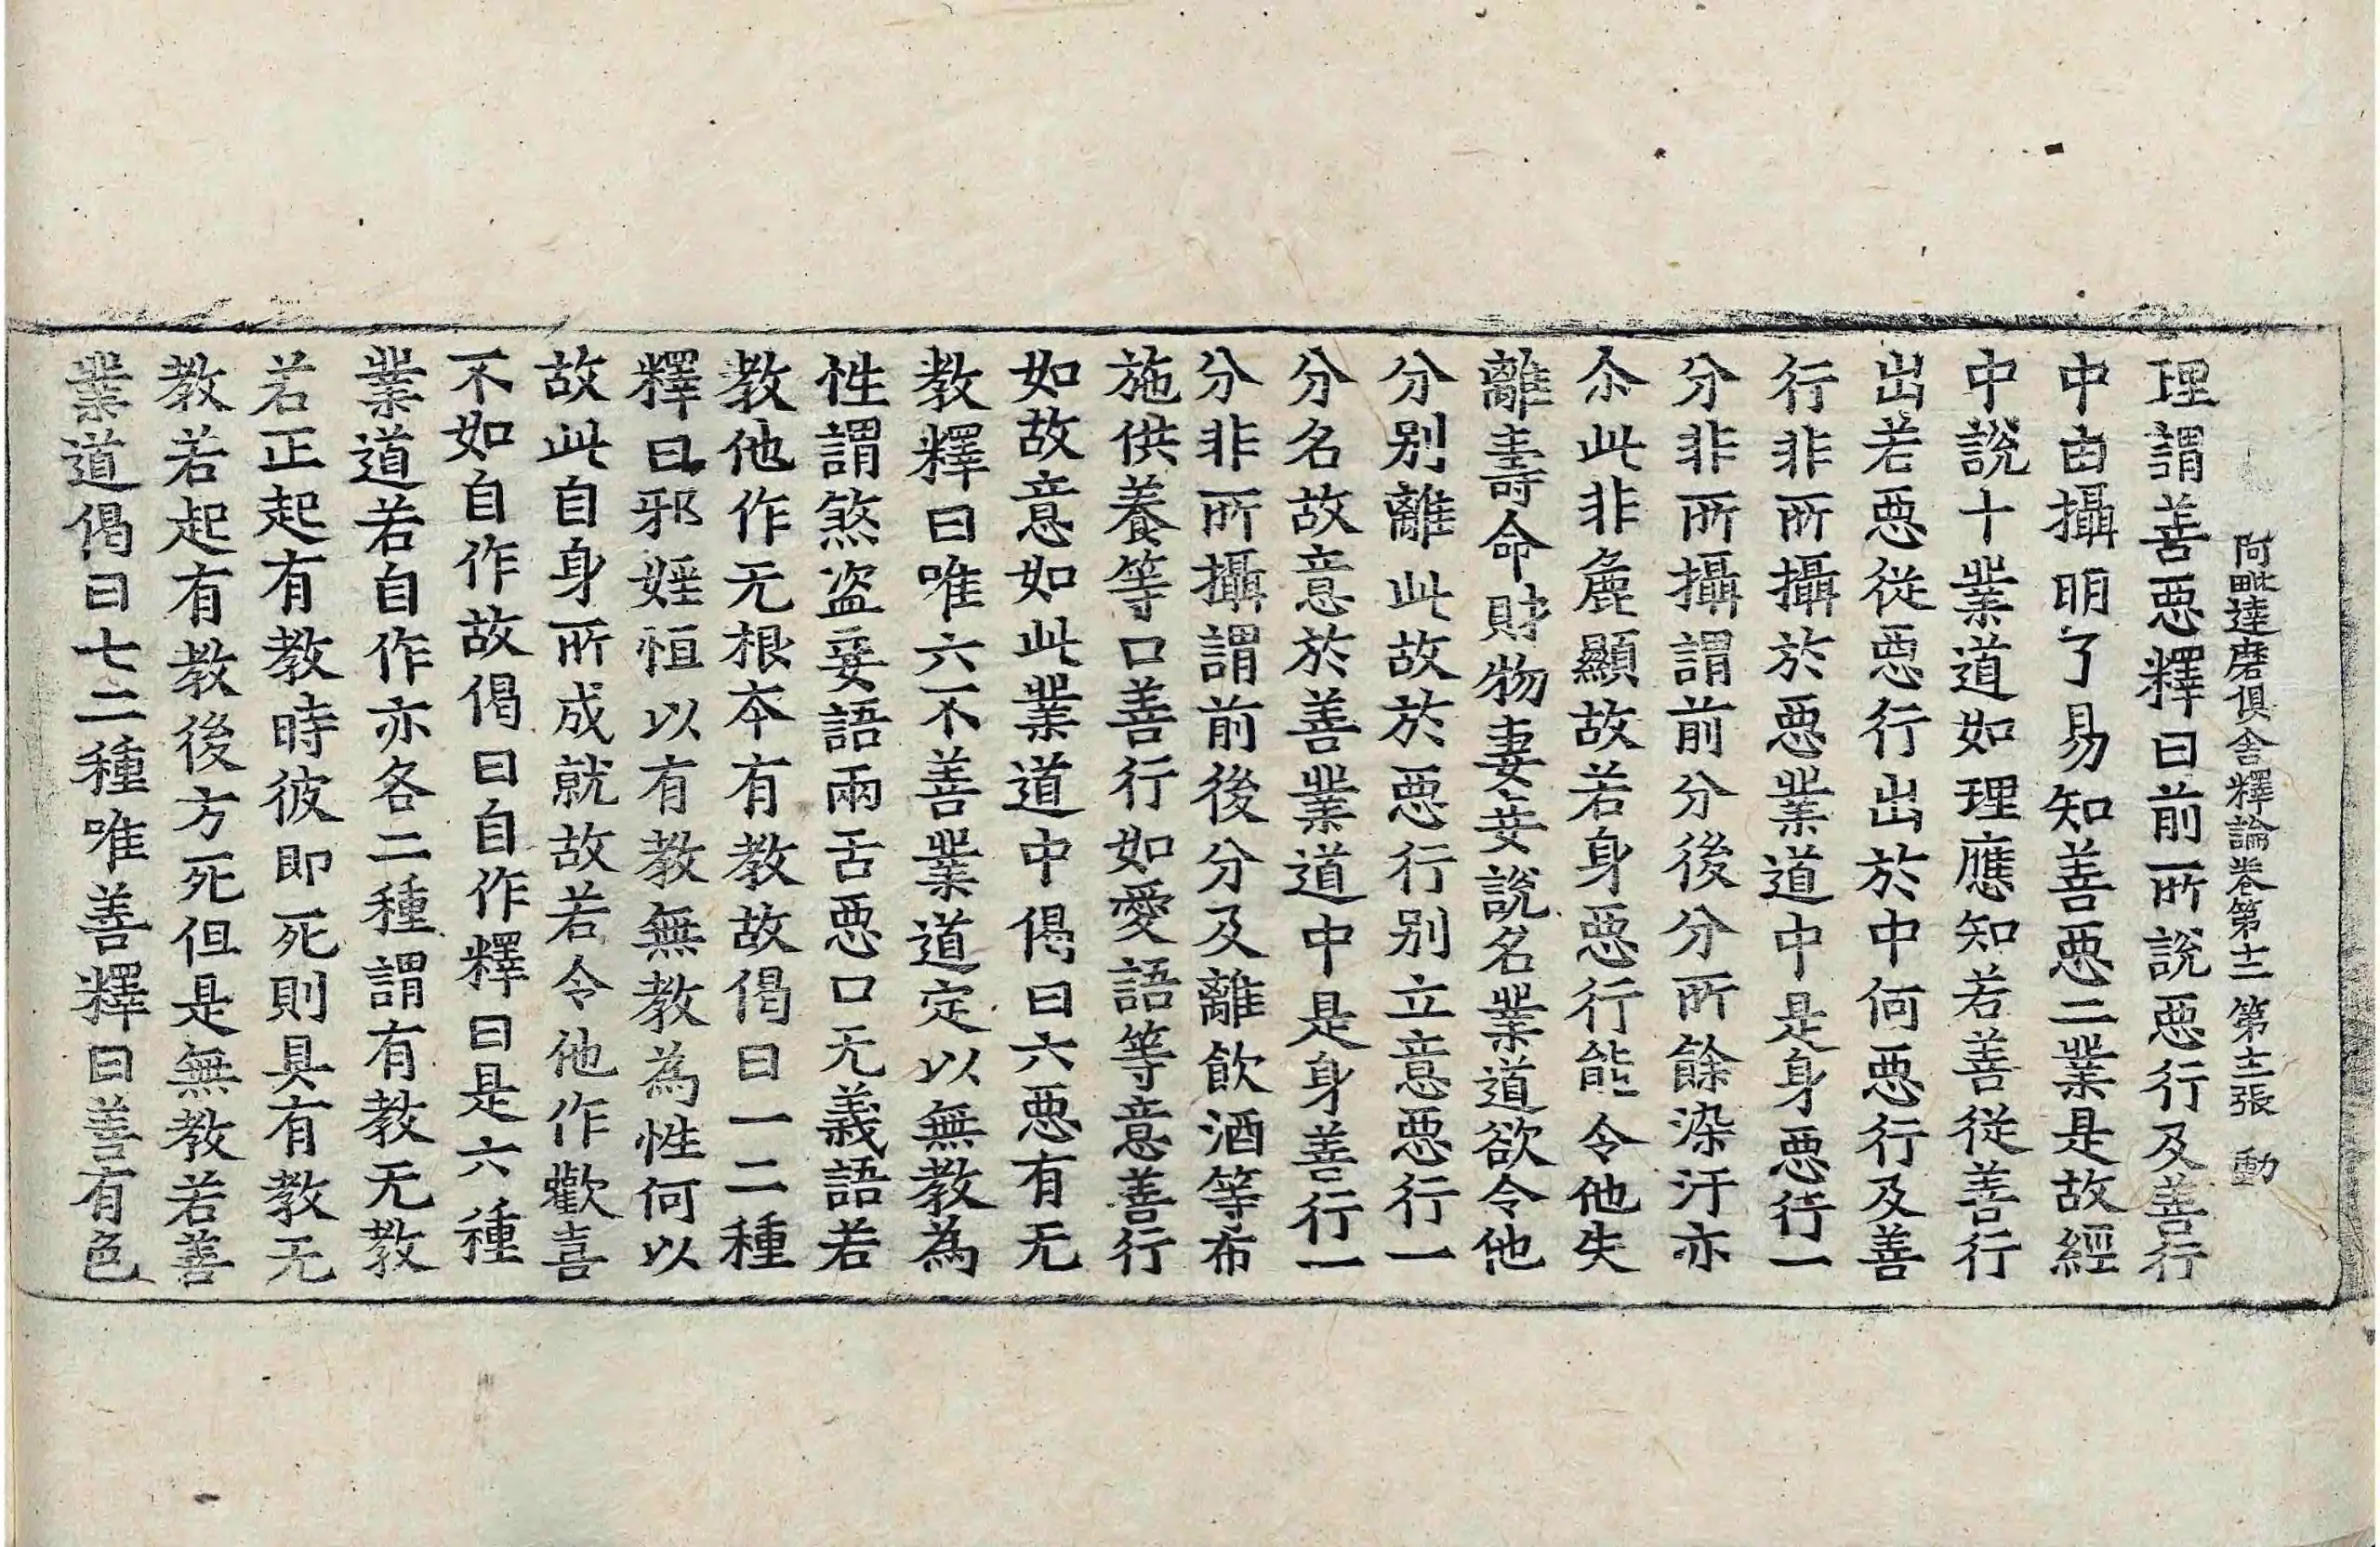 阿毗達磨俱舍釋論卷第十二 第十二張 動
理謂善惡釋曰前所說惡行及善行
中由攝明了易知善惡二業是故經
中說十業道如理應知若善從善行
出若惡從惡行出於中何惡行及善
行非所攝於惡業道中是身惡行一
分非所攝謂前分後分所餘染汙亦
尒此非麁顯故若身惡行能令他失
離壽命財物妻妾說名業道欲令他
分別離此故於惡行別立意惡行一
分名故意於善業道中是身善行一
分非所攝謂前後分及離飲酒等布
施供養等口善行如愛語等意善行
如故意如此業道中偈曰六惡有无
教釋曰唯六不善業道定以無教為
性謂煞盗妄語兩舌惡口无義語若
教他作无根本有教故偈曰一二種
釋曰邪婬恒以有教無教為性何以
故此自身所成就故若令他作歡喜
不如自作故偈曰自作釋曰是六種
業道若自作亦各二種謂有教无教
若正起有教時彼即死則具有教无
教若起有教後方死但是無教若善
業道偈曰七二種唯善釋曰善有色